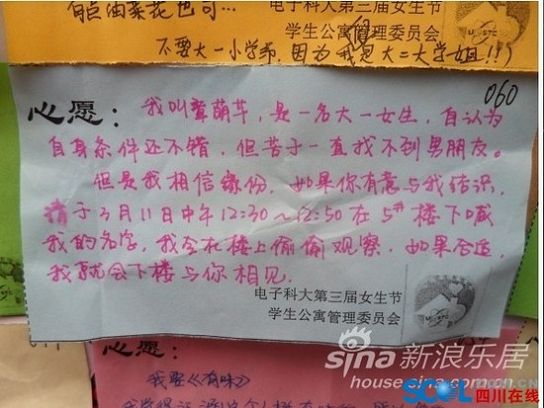 自己油菜花也可…
电子科大第三届女生节
学生公寓管理委员会
不要大一小学弟,因为我是大二大学姐!!)
060
心愿:
我叫龚萌芊,是一名大一女生,自认为
自身条件还不错,但苦于一直找不到男朋友。
但是我相信缘份,如果你有意与我结识,
请于3月11日中午12:30~12:50在5#楼下喊
我的名字,我会在楼上偷偷观察,如果合适,
我就会下楼与你相见。
电子科大第三届女生节
学生公寓管理委员会
心愿:
我要《有味》
sina新浪乐居
house.sina.com.cn
SCOL四川在线